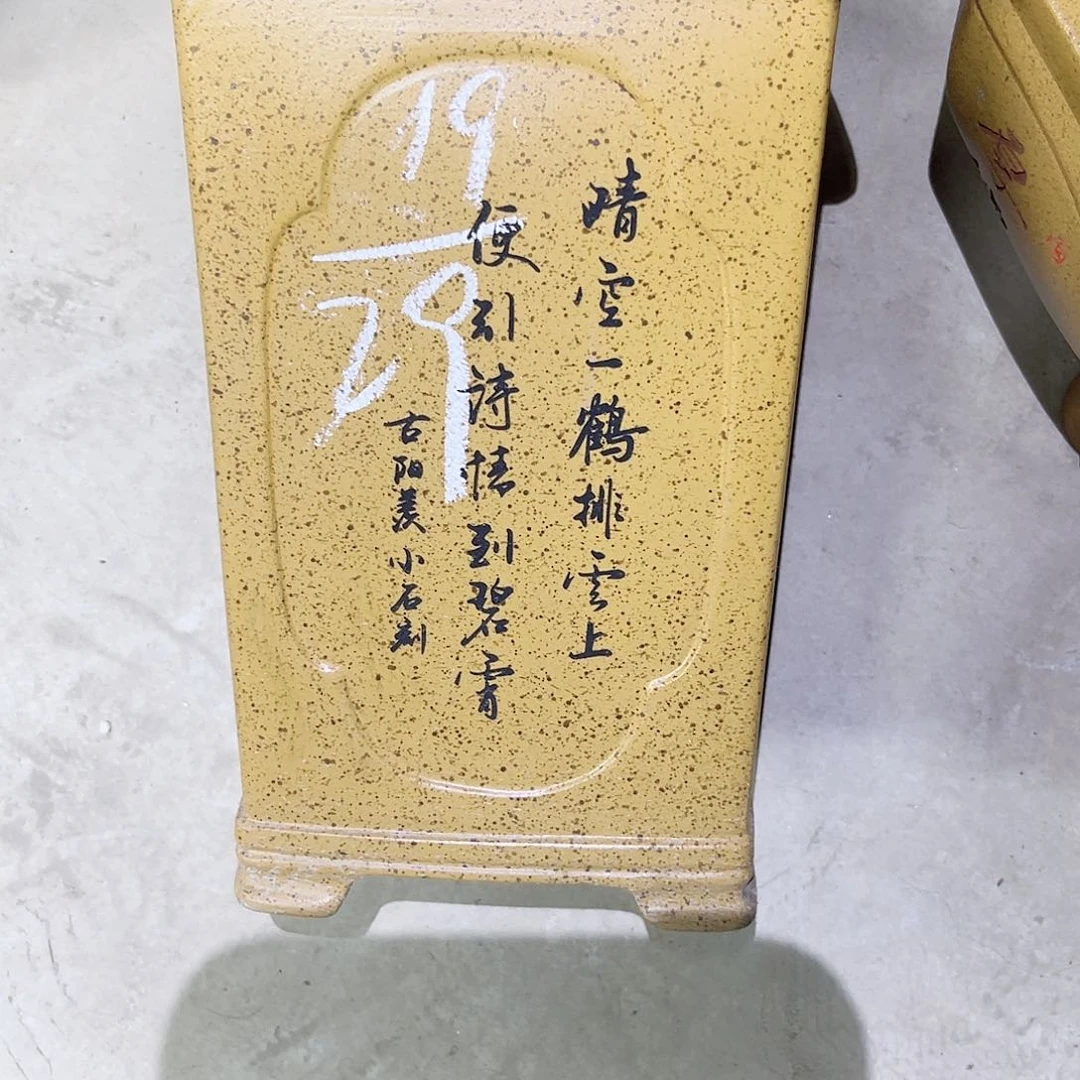 晴空一鶴排雲上
便引詩情到碧霄
古阳羨小石刻
19
29